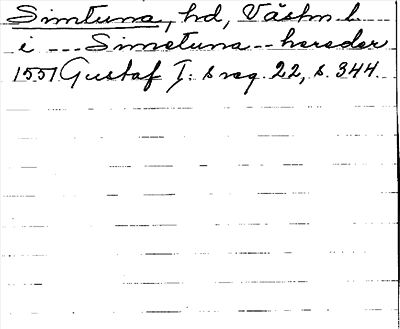 Simtuna, hd, Västm. l.
i --- Simetuna -- hereder
1551 Gustaf I: s reg. 22, s. 344.